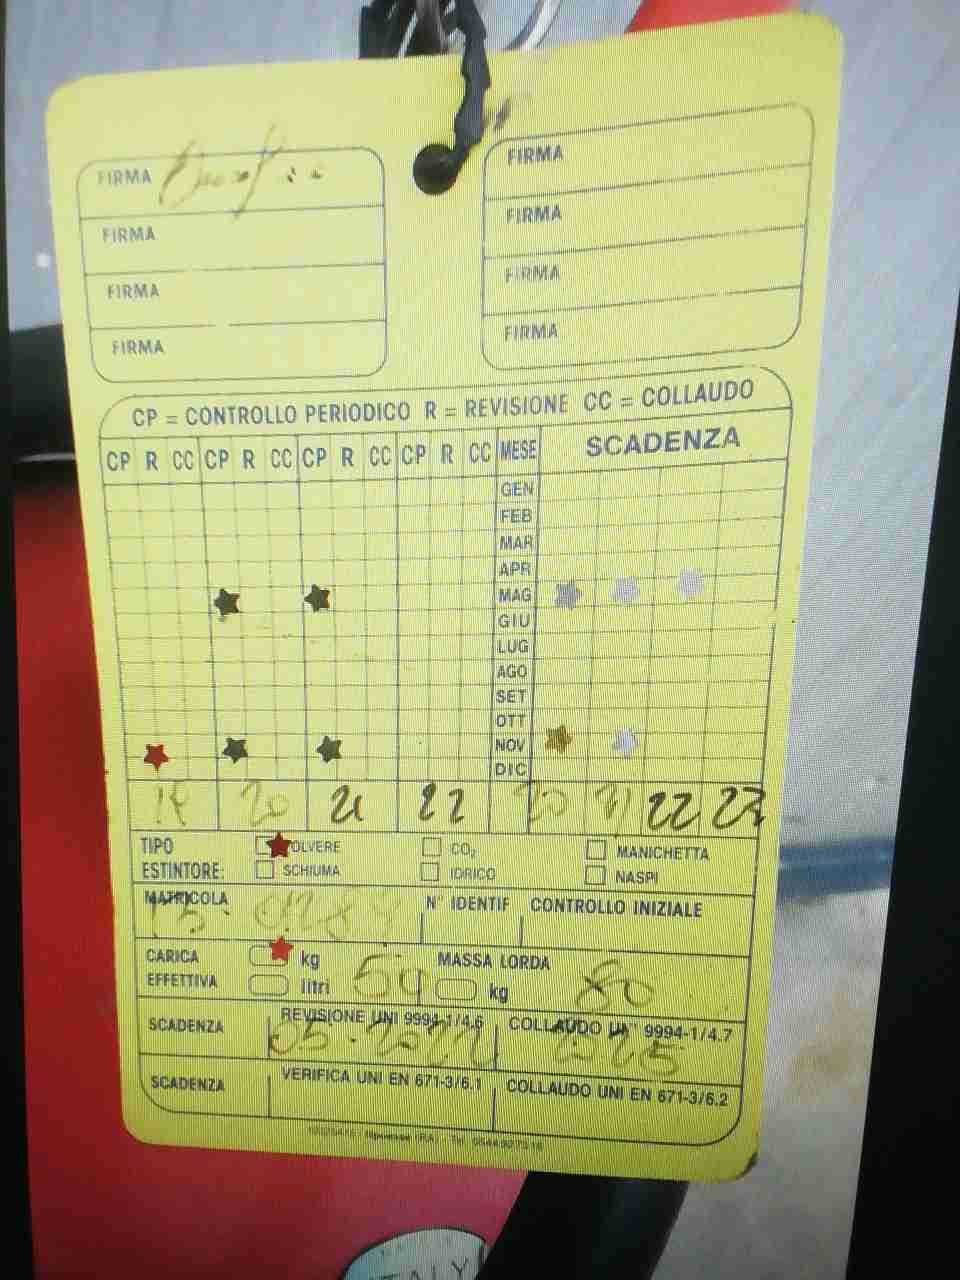 FIRMA
FIRMA
FIRMA
FIRMA
FIRMA
FIRMA
FIRMA
FIRMA
CP = CONTROLLO PERIODICO R = REVISIONE CC = COLLAUDO
CP R CC CP R CC CP R CC CP R CC MESE SCADENZA
GEN
FEB
MAR
APR
MAG
GIU
LUG
AGO
SET
OTT
NOV
DIC
19 20 21 22 20 21 22 23
TIPO ESTINTORE:
POLVERE CO₂ MANICHETTA
SCHIUMA IDRICO NASPI
MATRICOLA N° IDENTIF CONTROLLO INIZIALE
CARICA EFFETTIVA
kg MASSA LORDA
litri 50 kg 80
SCADENZA REVISIONE UNI 9994-1/4.6 COLLAUDO UNI 9994-1/4.7
05.2022 2025
SCADENZA VERIFICA UNI EN 671-3/6.1 COLLAUDO UNI EN 671-3/6.2
ITALY